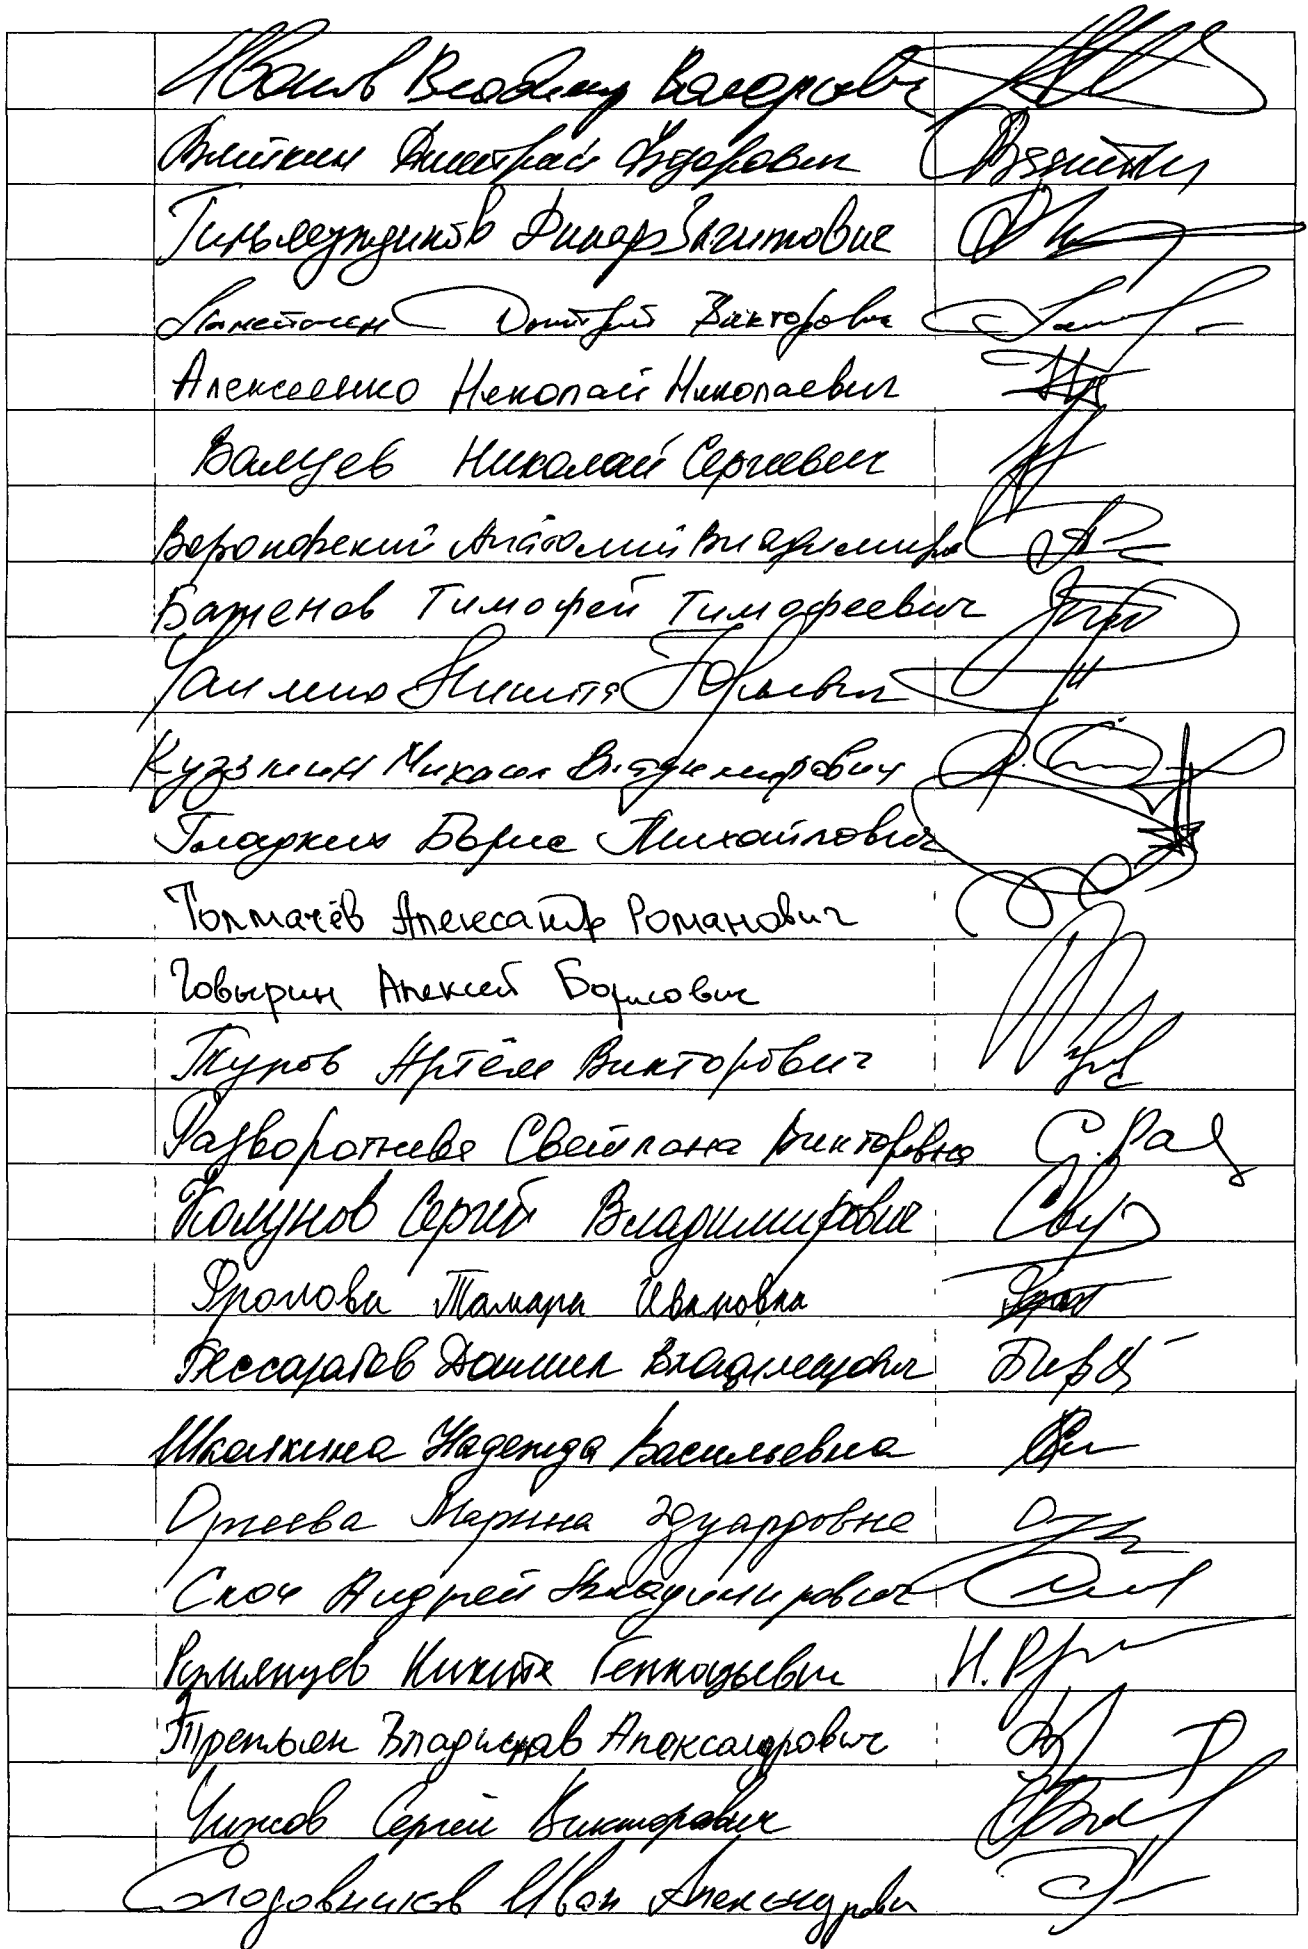 Иванов Владимир Валерьевич
Вяткин Дмитрий Федорович
Гильмутдинов Динар Загитович
Ламейкин Дмитрий Викторович
Алексеенко Николай Николаевич
Валуев Николай Сергеевич
Вороновский Анатолий Владимиро
Баженов Тимофей Тимофеевич
Чаплин Никита Юрьевич
Кузьмин Михаил Владимирович
Гладких Борис Михайлович
Толмачёв Александр Романович
Говырин Алексей Борисович
Туров Артём Викторович
Разворотнева Светлана Викторовна С. Раз
Колунов Сергей Владимирович
Фролова Тамара Ивановна
Бессарабов Даниил Владимирович
Школкина Надежда Васильевна
Оргеева Марина Эдуардовна
Скоч Андрей Владимирович
Румянцев Никита Геннадьевич
Третьяк Владислав Александрович
Чижов Сергей Викторович
Солодовников Иван Александрович